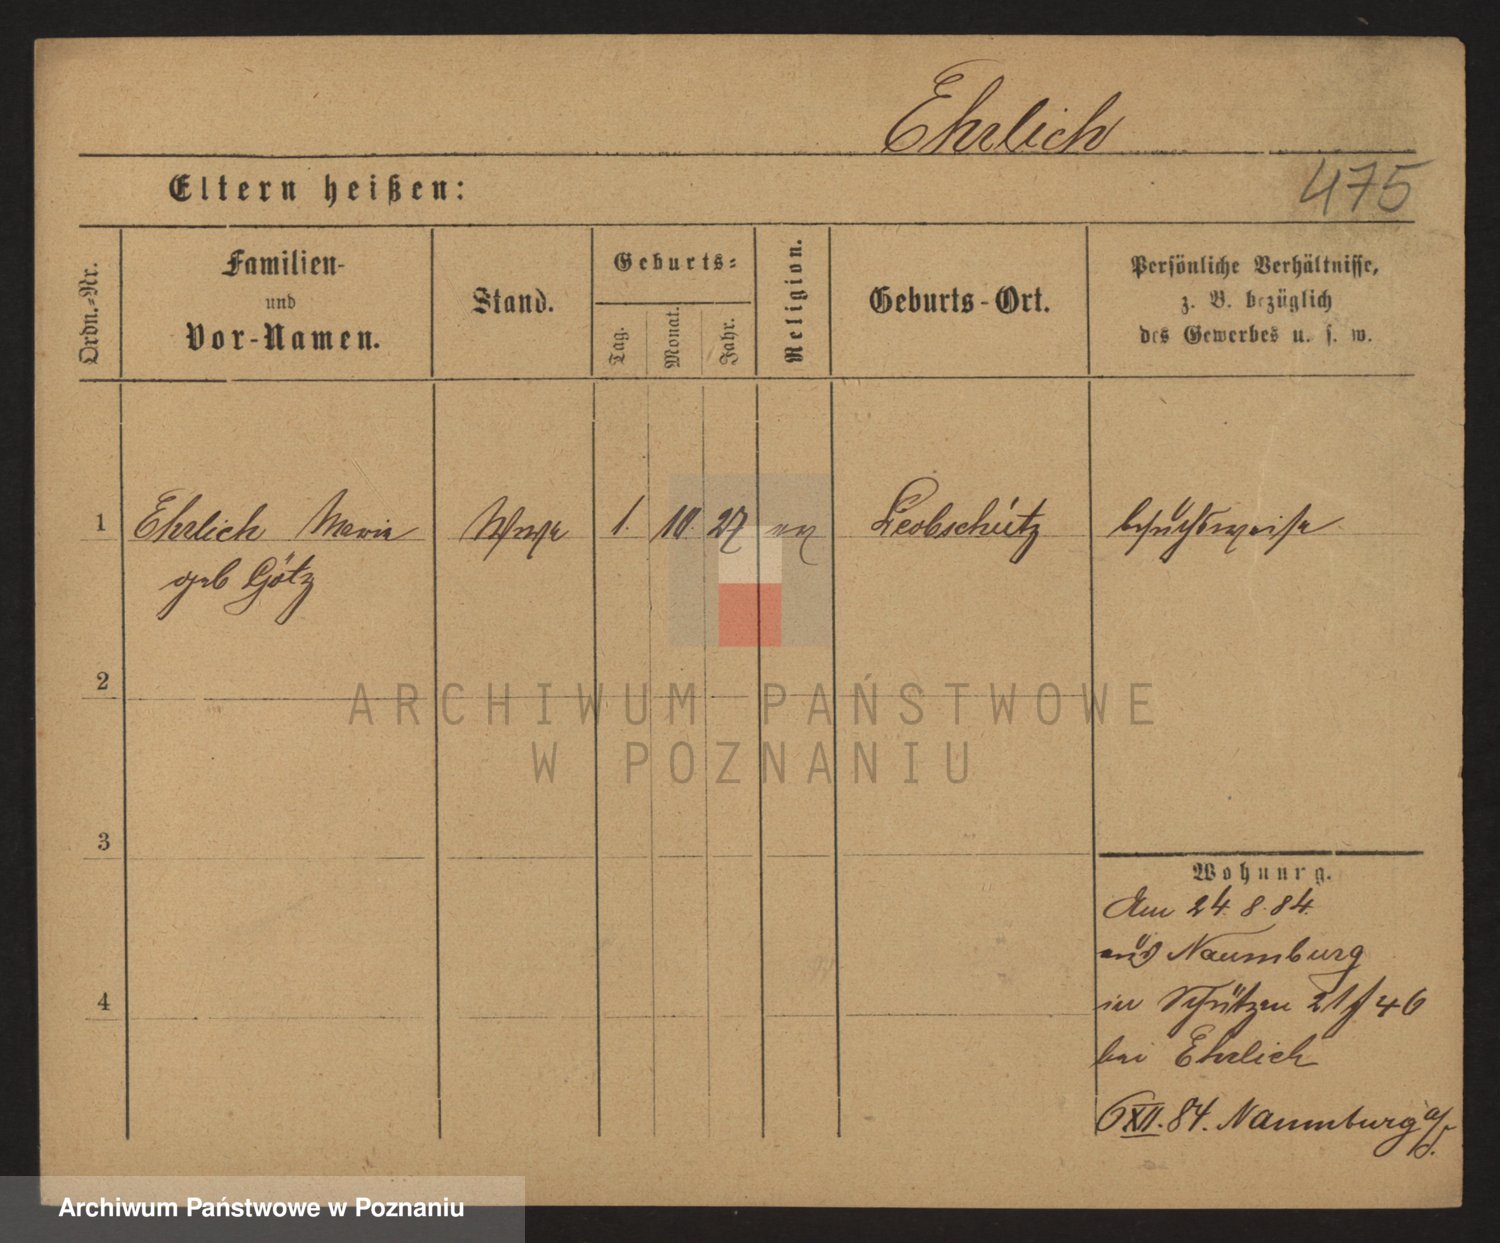 Ehrlich
Eltern heißen:
475
Ordn.-Nr.
Familien-
und
Vor-Namen.
Stand.
Geburts-
Tag.
Monat.
Jahr.
Religion.
Geburts-Ort.
Persönliche Verhältnisse,
z. B. bezüglich
des Gewerbes u. s. w.
1 Ehrlich Maria Wwe 1. 10. 27 ev Leobschütz besuchsweise
geb Götz
2
3
4
Wohnung.
Am 24. 8. 84.
aus Naumburg
in Schützen 21 46
bei Ehrlich
6 XII. 84. Naumburg a/
ARCHIWUM PAŃSTWOWE
W POZNANIU
Archiwum Państwowe w Poznaniu